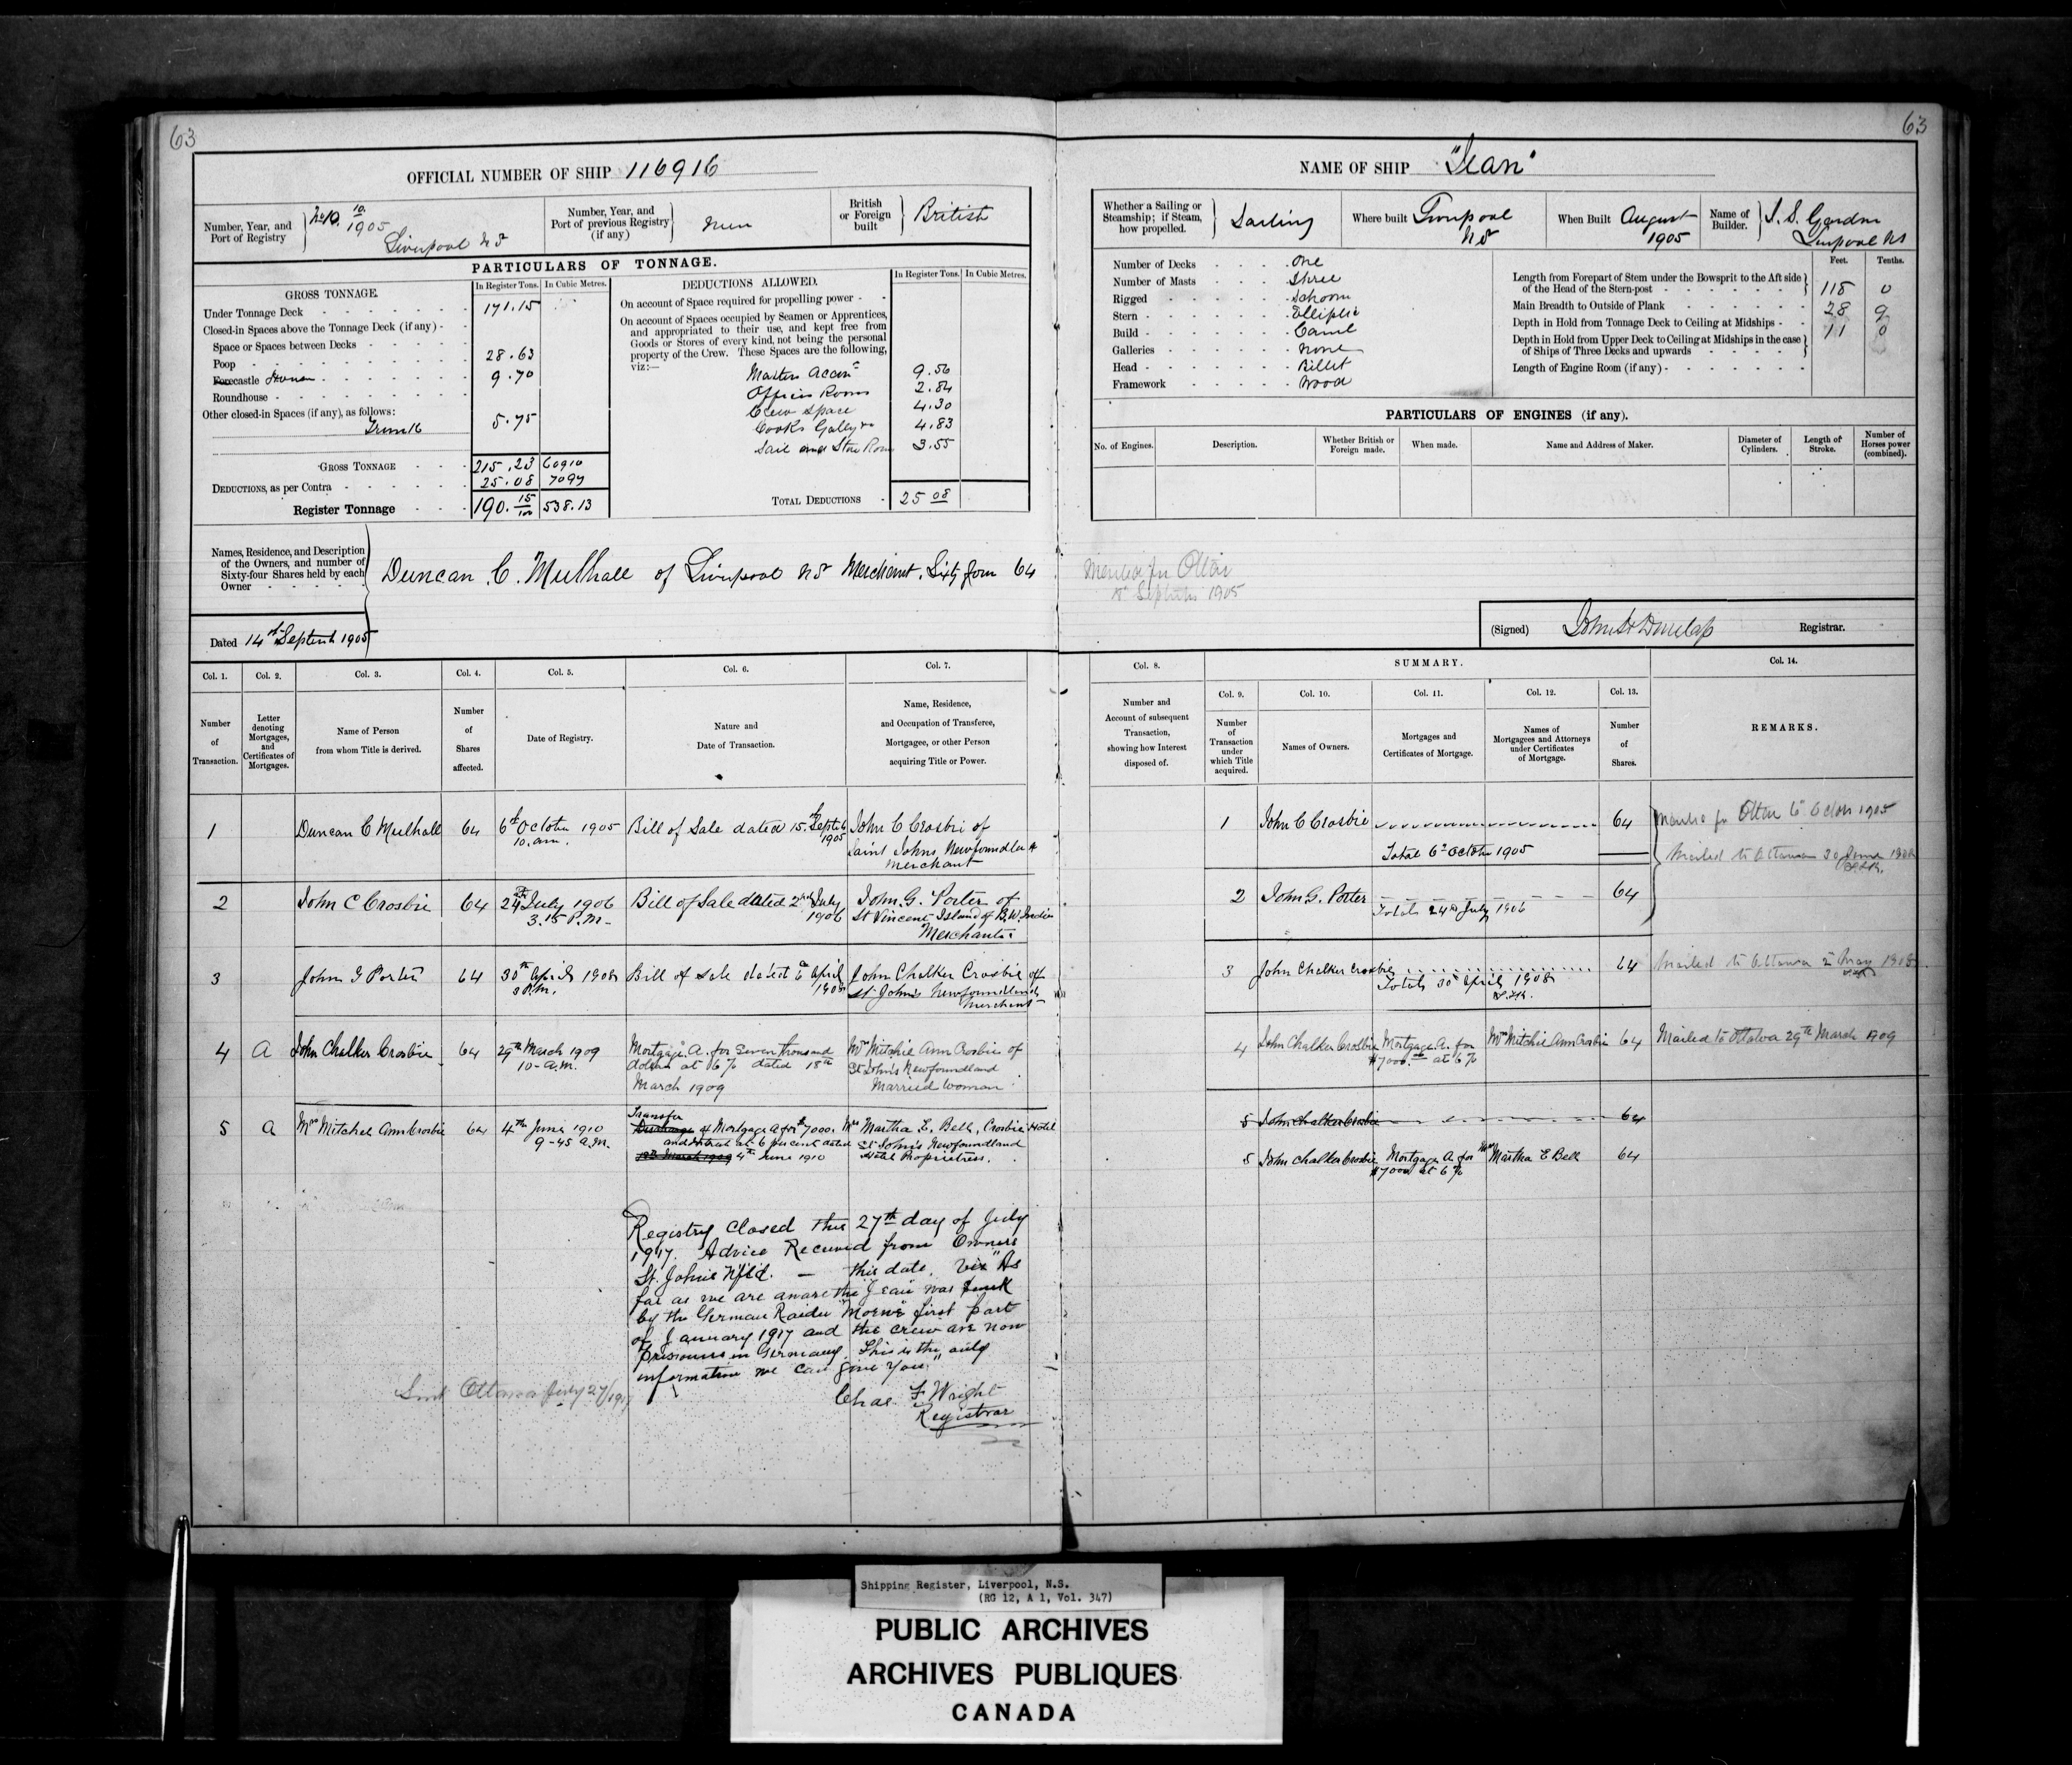 63
63
OFFICIAL NUMBER OF SHIP 116916
NAME OF SHIP "Jean"
Number, Year, and Port of Registry
No 10. 10/1905
Liverpool NS
Number, Year, and Port of previous Registry (if any)
British or Foreign built
British
Whether a Sailing or Steamship; if Steam, how propelled.
Sailing
Where built Liverpool NS
When Built August 1905
Name of Builder. S. S. Gardner Liverpool NS
PARTICULARS OF TONNAGE.
GROSS TONNAGE.
In Register Tons. In Cubic Metres.
Under Tonnage Deck 171.15
Closed-in Spaces above the Tonnage Deck (if any)
Space or Spaces between Decks
Poop 28.63
Forecastle 9.70
Roundhouse
Other closed-in Spaces (if any), as follows:
5.75
GROSS TONNAGE 215.23 609 10
DEDUCTIONS, as per Contra 25.08 70 97
Register Tonnage 190. 15/100 538.13
DEDUCTIONS ALLOWED.
In Register Tons. In Cubic Metres.
On account of Space required for propelling power
On account of Spaces occupied by Seamen or Apprentices, and appropriated to their use, and kept free from Goods or Stores of every kind, not being the personal property of the Crew. These Spaces are the following, viz:—
Masters Accom 9.56
Officers Room 2.84
Crew Space 4.30
Cooks Galley 4.83
Sail and Store Room 3.55
TOTAL DEDUCTIONS 25 08
Number of Decks One
Number of Masts Three
Rigged Schooner
Stern Elliptic
Build Carvel
Galleries None
Head Billet
Framework Wood
Feet. Tenths.
Length from Forepart of Stem under the Bowsprit to the Aft side of the Head of the Stern-post 118 0
Main Breadth to Outside of Plank 28 9
Depth in Hold from Tonnage Deck to Ceiling at Midships 11 0
Depth in Hold from Upper Deck to Ceiling at Midships in the case of Ships of Three Decks and upwards
Length of Engine Room (if any)
PARTICULARS OF ENGINES (if any).
No. of Engines. Description. Whether British or Foreign made. When made. Name and Address of Maker. Diameter of Cylinders. Length of Stroke. Number of Horses power (combined).
Names, Residence, and Description of the Owners, and number of Sixty-four Shares held by each Owner
Duncan C. Mulhall of Liverpool NS Merchant. Sixty four 64
September 1905
Dated 14th September 1905
(Signed) John H Dunlap Registrar.
Col. 1. Col. 2. Col. 3. Col. 4. Col. 5. Col. 6. Col. 7.
Number of Transaction.
Letter denoting Mortgages, and Certificates of Mortgages.
Name of Person from whom Title is derived.
Number of Shares affected.
Date of Registry.
Nature and Date of Transaction.
Name, Residence, and Occupation of Transferee, Mortgagee, or other Person acquiring Title or Power.
Col. 8.
Number and Account of subsequent Transaction, showing how Interest disposed of.
SUMMARY.
Col. 9. Col. 10. Col. 11. Col. 12. Col. 13.
Number of Transaction under which Title acquired.
Names of Owners.
Mortgages and Certificates of Mortgage.
Names of Mortgagees and Attorneys under Certificates of Mortgage.
Number of Shares.
Col. 14.
REMARKS.
1 Duncan C Mulhall 64 6th October 1905 10. am. Bill of Sale dated 15th Septeb 1905 John C Crosbie of Saint Johns Newfoundland merchant
1 John C Crosbie 64
Total 6th October 1905
Mailed to Ottawa 30 June 1906
2 John C Crosbie 64 24th July 1906 3.15 P.M. Bill of Sale dated 2nd July 1906 John. G. Porter of St Vincent Island of B.W. Indies Merchant
2 John G. Porter 64
Total 24th July 1906
3 John G Porter 64 30th April 1908 3 P.M. Bill of sale dated 6 April 1908 John Chalker Crosbie of St John's Newfoundland Merchant
3 John Chalker Crosbie 64
Totals 30th April 1908
Mailed to Ottawa 2 May 1908
4 A John Chalker Crosbie 64 29th March 1909 10- a.m. Mortgage A. for Seven thousand dollars at 6% dated 18th March 1909 Mrs Mitchie Ann Crosbie of St John's Newfoundland Married woman
4 John Chalker Crosbie Mortgage A. for $7000.00 at 6% Mrs Mitchie Ann Crosbie 64 Mailed to Ottawa 29th March 1909
5 A Mrs Mitchel Ann Crosbie 64 4th June 1910 9-45 a.m. Transfer of Mortgage A for $7000. and interest at 6 per cent dated 18th March 1909 4th June 1910 Mrs Martha E. Bell, Crosbie Hotel St John's Newfoundland Hotel Proprietress.
5 John Chalker Crosbie 64
5 John Chalker Crosbie Mortgage A. for $7000 at 6% Mrs Martha E Bell 64
Registry Closed this 27th day of July
1917. Advice Received from Owners
St. Johns Nfld. — this date, viz "As
far as we are aware the "Jean" was sunk
by the German Raider "Moewe" first part
of January 1917 and the crew are now
Prisoners in Germany. This is the only
information we can give you."
Chas. F Wright
Registrar
Sent Ottawa July 27/1917
Shipping Register, Liverpool, N.S.
(RG 12, A 1, Vol. 347)
PUBLIC ARCHIVES
ARCHIVES PUBLIQUES
CANADA